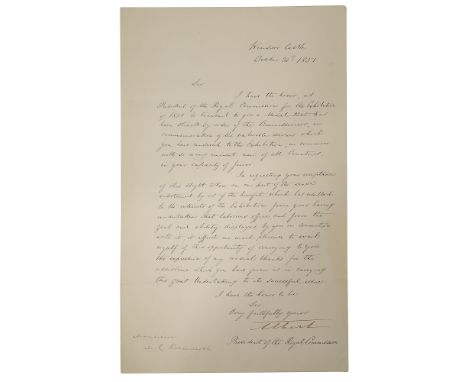 Windsor Castle
October 20th 1851
Sir
I have the honor, as
President of the Royal Commission for the Exhibition
of 1851 to transmit to you a Medal that has
been struck by order of the Commissioners, in
commemoration of the valuable services which
you have rendered to the Exhibition, in common
with so many eminent men of all Countries,
in your capacity of Juror
In requesting your acceptance
of this slight token on our part of the sense
entertained by us of the benefit, which has resulted
to the interests of the Exhibition from your having
undertaken that laborious office, and from the
zeal and ability displayed by you in connection
with it, it affords me much pleasure to avail
myself of this opportunity of conveying to you
the expression of my cordial thanks for the
assistance which you have given us in carrying
this great Undertaking to its successful issue
I have the honor to be
Sir
Very faithfully yours
Albert
President of the Royal Commission
Monsieur